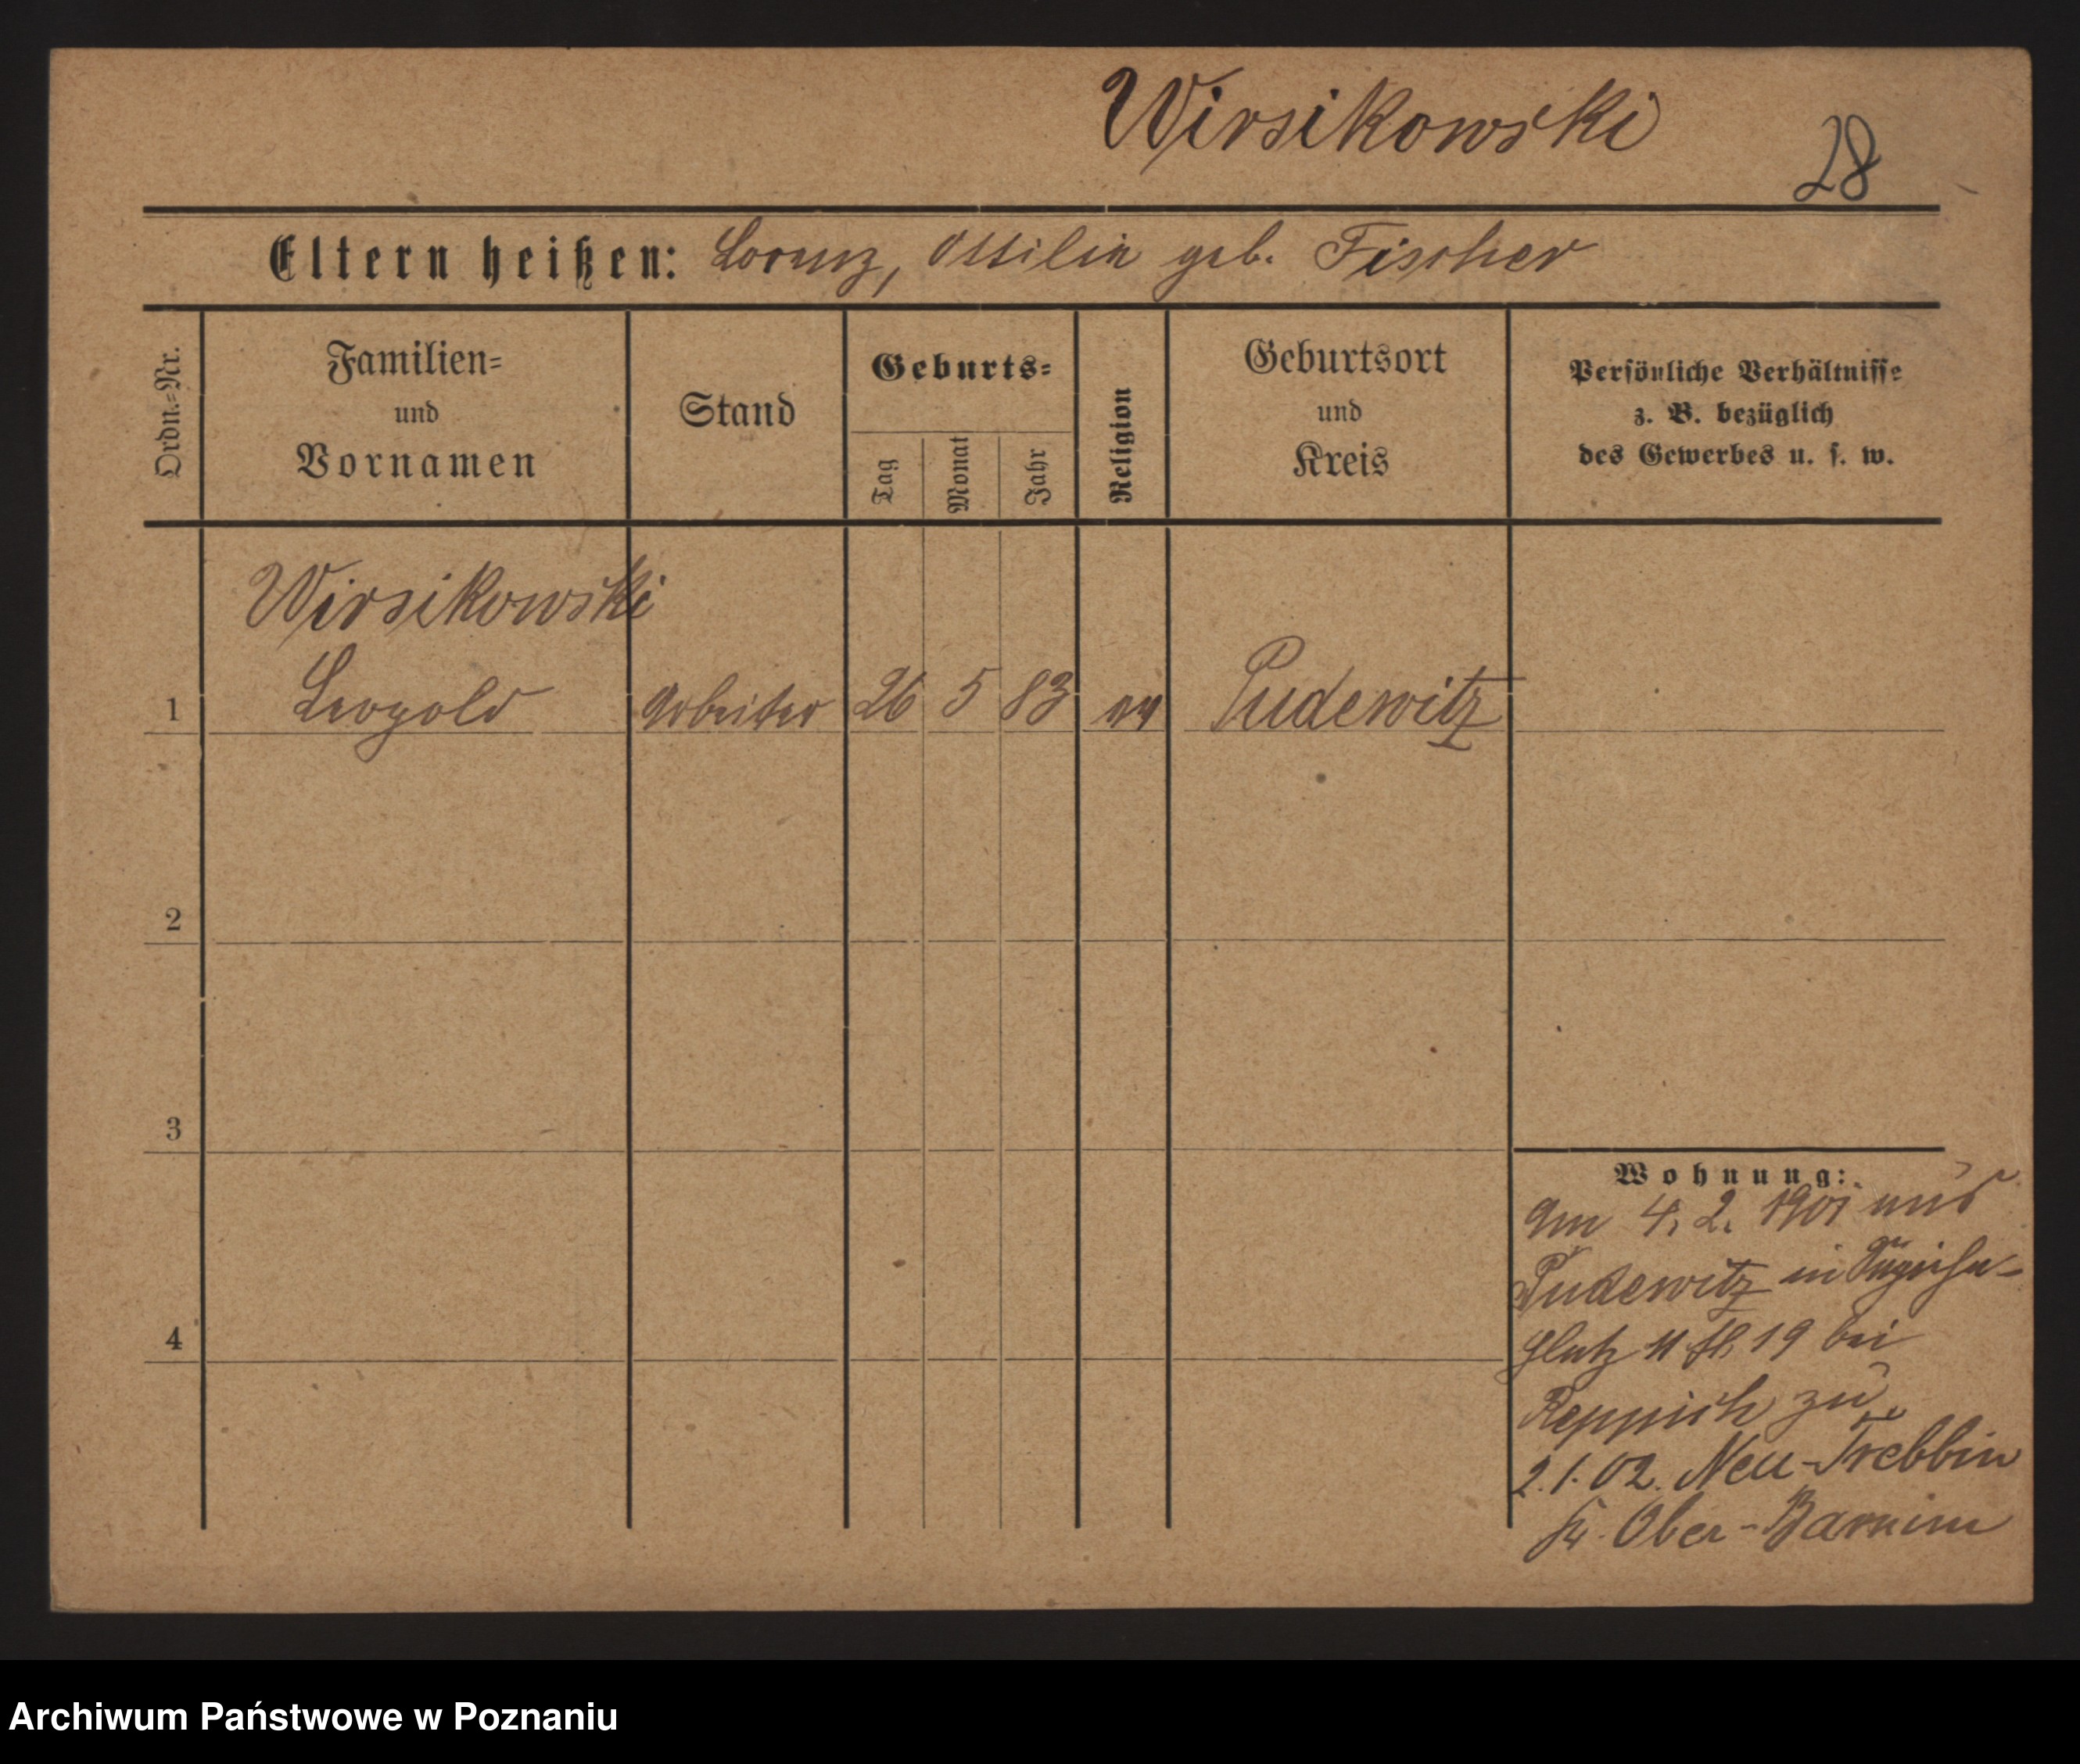 Wirsikowski
28
Eltern heißen: Lorenz, Ottilie geb. Fischer
Ordn.-Nr.
Familien-
und
Vornamen
Stand
Geburts-
Tag
Monat
Jahr
Religion
Geburtsort
und
Kreis
Persönliche Verhältnisse
z. B. bezüglich
des Gewerbes u. s. w.
Wirsikowski
1 Leopold Arbeiter 26 5 83 ev Pudewitz
2
3
4
Wohnung:
Am 4. 2. 1901 aus
Pudewitz in
19 bei
Reppich zu
2.1.02. Neu-Trebbin
Kr. Ober-Barnim
Archiwum Państwowe w Poznaniu